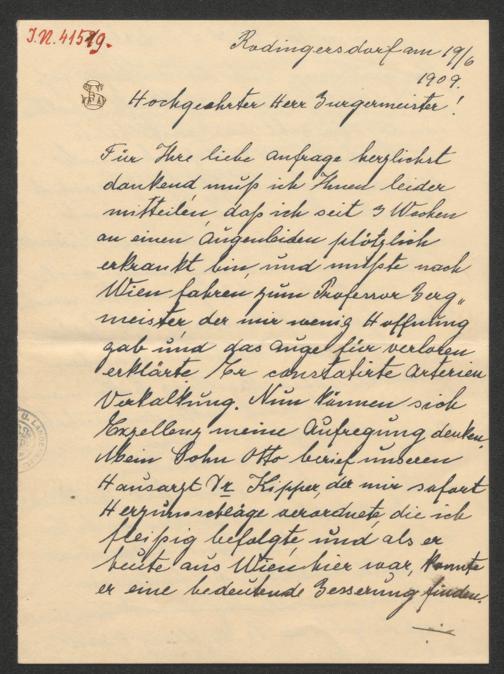 I.N. 41579.
Rodingersdorf am 19/6
1909.
Hochgeehrter Herr Burgermeister!
Für Ihre liebe Anfrage herzlichst
dankend muß ich Ihnen leider
mitteilen, daß ich seit 3 Wochen
an einen Augenleiden plötzlich
erkrankt bin, und mußte nach
Wien fahren zum Professor Berg„
meister der mir wenig Hoffnung
gab und das Auge für verloren
erklärte Er constatirte Arterien
Verkalkung. Nun können sich
Exzellenz meine Aufregung denken.
Mein Sohn Otto berief unseren
Hausarzt Dr Kipper, der mir sofort
Herzumschläge verordnete, die ich
fleißig befolgte, und als er
heute aus Wien hier war, konnte
er eine bedeutende Besserung finden.